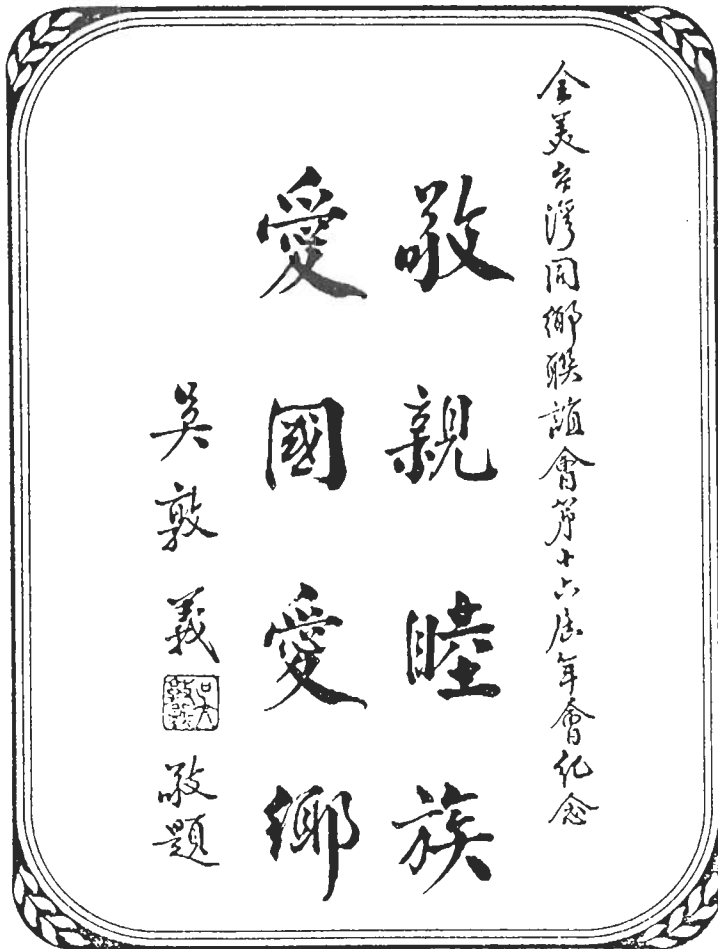 全美台灣同鄉聯誼會第十六屆年會紀念
敬親睦族
愛國愛鄉
吳敦義
吳敦義
敬題